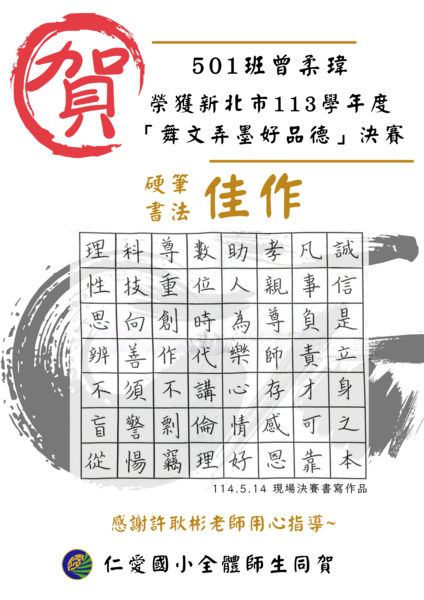 賀
501班曾柔瑋
榮獲新北市113學年度
「舞文弄墨好品德」決賽
硬筆
書法
佳作
誠信是立身之本
凡事負責才可靠
孝親尊師存感恩
助人為樂心情好
數位時代講倫理
尊重創作不剽竊
科技向善須警惕
理性思辨不盲從
114.5.14 現場決賽書寫作品
感謝許耿彬老師用心指導~
仁愛國小全體師生同賀